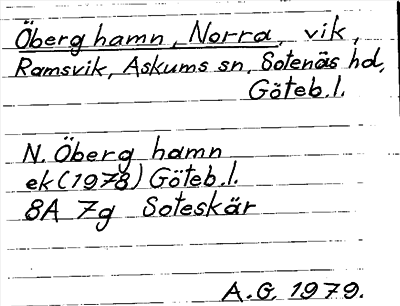 Öberg hamn, Norra, vik,
Ramsvik, Askums sn, Sotenäs hd,
Göteb.l.
N. Öberg hamn
ek (1978) Göteb.l.
8A 7g Soteskär
A.G. 1979.